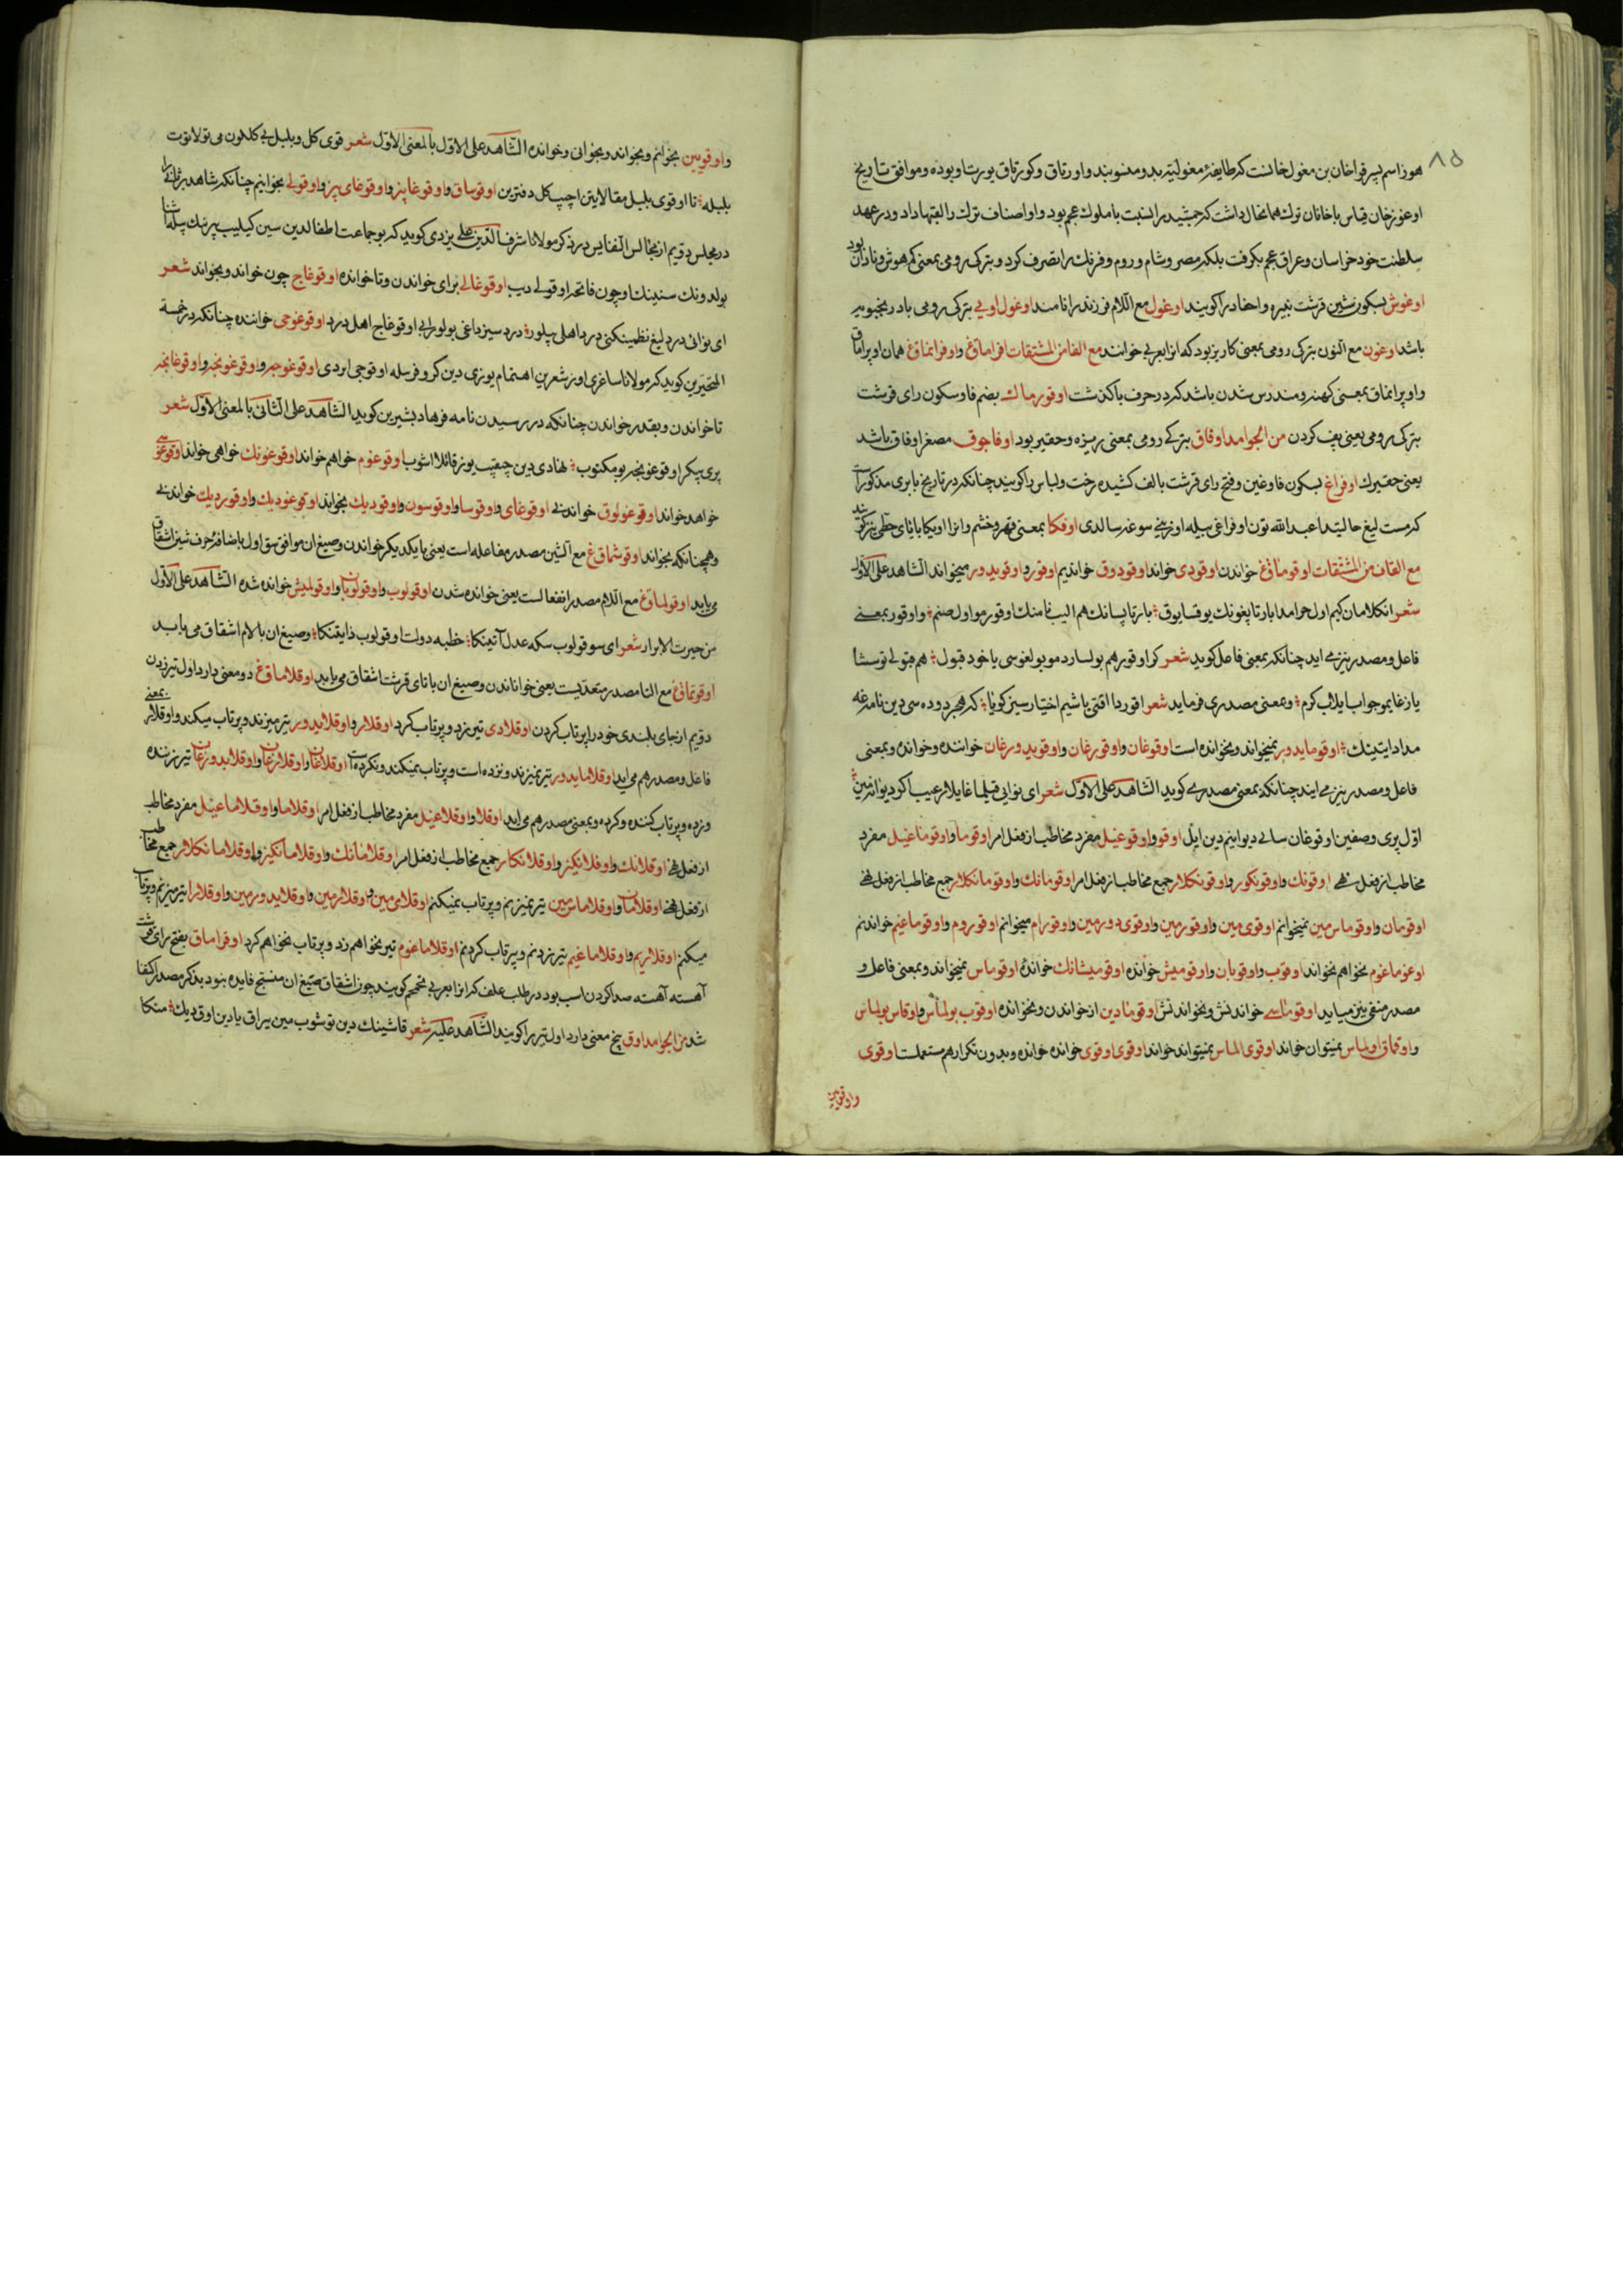 ۸۵
هوز اسم پسر قراخان بن مغول خانست که طایفهٔ مغولیّه بدو منسوبند و اورتاق و کورتاق یورت او بوده و موافق تاریخ
اوغوز خان قیاس با خاقان ترك همانحال داشت که جمشید را نسبت با ملوك عجم بود و او اصناف ترك را لقبها داد و در عهد
سلطنت خود خراسان و عراق عجم بگرفت بلکه مصر و شام و روم و فرنك را بتصرف کرد و بترکی رومی بمعنی کم هوش و نادان بود
اوغوش بسکون شین قرشت نبیره و احفاد را کویند اوغول مع اللام فرزند را نامند اوغول اویی بترکی رومی بادرنجبویه
باشد اوغون مع النون بترکی رومی بمعنی کاریز بود که انرا بعربی خوانند مع الفا من المشتقات افراماق و اوفرانماق همان اوپراماق
و اوپرانماق بمعنی کهنه و مندرس شدن باشد که در حرف با کذشت اوفورماك بضم فا و سکون رای قرشت
بترکی رومی یعنی پف کردن من الجوامد اوفاق بترکی رومی بمعنی ریزه و حقیر بود اوفاجوق مصغر اوفاق باشد
یعنی حقیرك اوفراغ بسکون فا و غین و فتح رای قرشت بالف کشیده رخت و لباس را کویند چنانکه در تاریخ بابری مذکور است
که مست لیغ حالیتدا عبدالله نون اوفراغی بیله اوزینی سوغه سالدی اوفکا بمعنی قهر و خشم و انرا اوپکا با یای حطی نیز کویند
مع القاف من المشتقات اوقوماق خواندن اوقودی خواند اوقودوق خواندیم اوقور و اوقویدور میخواند الشاهد علی الاوّل
شعر انکلامان کیم اول حرامدا بارتاپغونك یوقسا یوق بارتاپسانك هم الیب نامنك اوقورمو اول صنم و اوقور بمعنی
فاعل و مصدر نیز می اید چنانکه بمعنی فاعل کوید شعر کر اوقور هم بولسا ردمو بولغوسی یا خود قبول هم قبولی توسشا
یازغایمو جواب ایلاب کرم و بمعنی مصدری فرماید شعر اقوردا اقتی یاشیم اختیارسیز کویا که هجر دوده سی دین نامه غه
مداد ایتینك اوقومایدور نمیخواند و نخوانده است اوقوغان و اوقورغان و اوقویدورغان خواننده و خوانده و بمعنی
فاعل و مصدر نیز می ایند چنانکه بمعنی مصدری کوید الشاهد علی الاوّل شعر ای نوایی قیلما غایلار عیب اکر دیوانه مین
اوّل پری وصفین اوقوغان سالی دیوانیم دین ایل اوقو و اوقوغیل مفرد مخاطب از فعل امر اوقوما و اوقوماغیل مفرد
مخاطب از فعل نهی اوقونك و اوقونکوز و اوقونکلار جمع مخاطب از فعل امر اوقومانك و اوقومانکلار جمع مخاطب از فعل نهی
اوقومان و اوقوماس مین نمیخوانم اوقوی مین و اوقورمین و اوقوی دورمین و اوقورام میخوانم اوقوروم و اوقوماغیم خواندنم
اوقوماغوم نخواهم نخواند اوقوب و اوقوبان و اوقومیش خوانده اوقومیشانك خواندهٔ اوقوماس نمیخواند و بمعنی فاعل و
مصدر منفی نیز میاید اوقوماسی خواندنش و نخواندنش اوقومادین از خواندن و نخوانده اوقوب بولماس و اوقاس بولماس
و اوقماق اولماس نمیتوان خواند اوقوی الماس نمیتواند خواند اوقوی اوقوی خوانده خوانده و بدون تکرار هم مستعملست اوقوی
و اوقویین
و اوقویین بخوانم و بخواند و بخوانی و خوانده الشاهد علی الاوّل بالمعنی الاوّل شعر قوی کل و بلبل بی کلکون می تولا توت
بلبله تا اوقوی بلبل مقالایتن اچیپ کل دفترین اوقوساق و اوقوغابز و اوقوغای بیز و اوقولی بخوانیم چنانکه شاهد برثانی را
در مجلس دویم از مجالس النفایس در ذکر مولانا شرف الدین علی یزدی کوید که بو جماعت لطفا الدین سین کیلیب بیر نك پلدا ثنا
بولدونك سنینك اوچون فاتحه اوقولی دیب اوقوغالی برای خواندن و تا خوانده اوقوغاج چون خواند و بخواند شعر
ای نوائی درد لیغ نظمینکنی درد اهلی بیلور درد سیز داغی بولور ابی اوقوغاج اهل درد اوقوغوجی خواننده چنانکه در خمسة
المتحیرین کوید که مولانا ساغری اوز شعرین اهتمام یوزی دین کر و فر بیله اوقوجی ایردی اوقوغوجه و اوقوغونجه و اوقوغانجه
تا خواندن و بقدر خواندن چنانکه در رسیدن نامه فرهاد بشیرین کوید الشاهد علی الثانی بالمعنی الاوّل شعر
پری پیکر اوقوغونجه بو مکتوب نهادی دین چیقیب یوز قاتلا اشوب اوقوغوم خواهم خواند اوقوغونك خواهی خواند اوقوغوسی
خواهد خواند اوقوغولوق خواندنی اوقوغای و اوقوسا و اوقوسون و اوقودیك بخواند اوقوغودیك و اوقوردیك خواندنی
و همچنانکه بخواند اوقوشماق مع الشین مصدر مفاعله است یعنی با یکدیکر خواندن و صیغ ان موافق سق اول باضافهٔ حرف شین اشتقاق
می یابد اوقولماق مع اللام مصدر انفعالست یعنی خوانده شدن اوقولوب و اوقولوبان و اوقولمیش خوانده شده الشاهد علی الاوّل
من حیرت الابرار شعر ای سو قولوب سکه عدل آتینکا خطبه دولت اوقولوب ذایتنکا و صیغ ان با لام اشتقاق می یابد
اوقوتماق مع التا مصدر متعدّیست یعنی خواناندن و صیغ ان با تای قرشت اشتقاق می یابد اوقلاماق دو معنی دارد اول تیر زدن
دویم از جای بلندی خود را پرتاب کردن اوقلادی تیر زد و پرتاب کرد اوقلار و اوقلایدور تیر میزند و پرتاب میکند و اوقلار بمعنی
فاعل و مصدر هم می اید اوقلامایدور تیر نمیزند و نزده است و پرتاب نمیکند و نکرده است اوقلاغان و اوقلارغان و اوقلایدورغان تیر زننده
و زده و پرتاب کننده و کرده و بمعنی مصدر هم می اید اوقلا و اوقلاغیل مفرد مخاطب از فعل امر اوقلاما و اوقلاماغیل مفرد مخاطب
از فعل نهی اوقلانك و اوقلانکیز و اوقلانکلار جمع مخاطب از فعل امر اوقلامانك و اوقلامانکیز و اوقلامانکلار جمع مخاطب
از فعل نهی اوقلامان و اوقلاماس مین تیر نمیزنم و پرتاب نمیکنم اوقلای مین و اوقلارمین و اوقلایدورمین و اوقلارا تیر میزنم و پرتاب
میکنم اوقلاریم و اوقلاماغیم تیر زدنم و پرتاب کردنم اوقلاماغوم تیر نخواهم زد و پرتاب نخواهم کرد اوقراماق بفتح رای قرشت
آهسته آهسته صدا کردن اسب بود در طلب علف که انرا بعربی تحمحم کویند چون اشتقاق صیغ ان منتج فایده نبود بذکر مصدر اکتفا
شد من الجوامد اوق پنج معنی دارد اول تیر را کویند الشاهد علیه شعر قاشینك دین توشوب مین یراق یا دین اوق دیك منکا